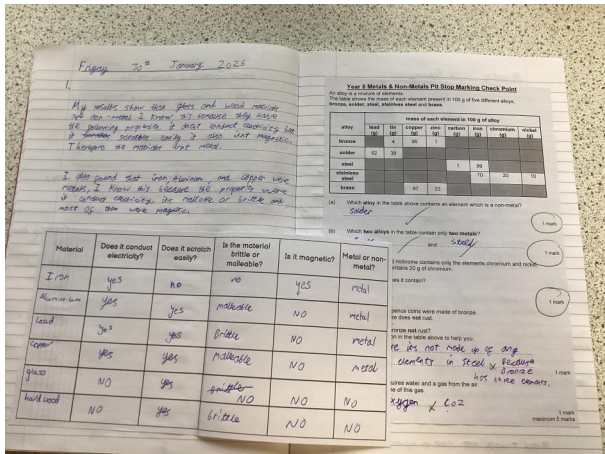 Friday 30th January 2026
1.
My results show that glass and wood
are non-metal I know this because they have
the properties it doesnt conduct electricity but
it easily it also isnt magnetic.
Therefore the isnt metal.
I also found that iron, Aluminium, and copper were
metals, I know this because the properties were
it conduct electricity, its malleable or brittle and
most of them were magnetic.
Material Does it conduct electricity? Does it scratch easily? Is the material brittle or malleable? Is it magnetic? Metal or non-metal?
Iron yes no no yes metal
Aluminium yes yes malleable NO metal
Lead yes yes Brittle NO metal
Copper yes yes Malleable NO Metal
glass NO yes NO NO NO
hard wood NO yes brittle NO NO
Year 8 Metals & Non-Metals Pit Stop Marking Check Point
An alloy is a mixture of elements.
The table shows the mass of each element present in 100 g of five different alloys,
bronze, solder, steel, stainless steel and brass.
mass of each element in 100 g of alloy
alloy lead (g) tin (g) copper (g) zinc (g) carbon (g) iron (g) chromium (g) nickel (g)
bronze 4 95 1
solder 62 38
steel 1 99
stainless steel 70 20 10
brass 67 33
(a) Which alloy in the table above contains an element which is a non-metal?
Solder
1 mark
(b) Which two alloys in the table contain only two metals?
and steel
1 mark
nichrome contains only the elements chromium and nickel.
contains 20 g of chromium.
es it contain?
1 mark
pence coins were made of bronze.
ze does not rust.
bronze not rust?
on in the table above to help you.
re its not made up of any
elements in steel Because
bronze
has three elements.
1 mark
uires water and a gas from the air
me of this gas.
oxygen CO2
1 mark
maximum 5 marks